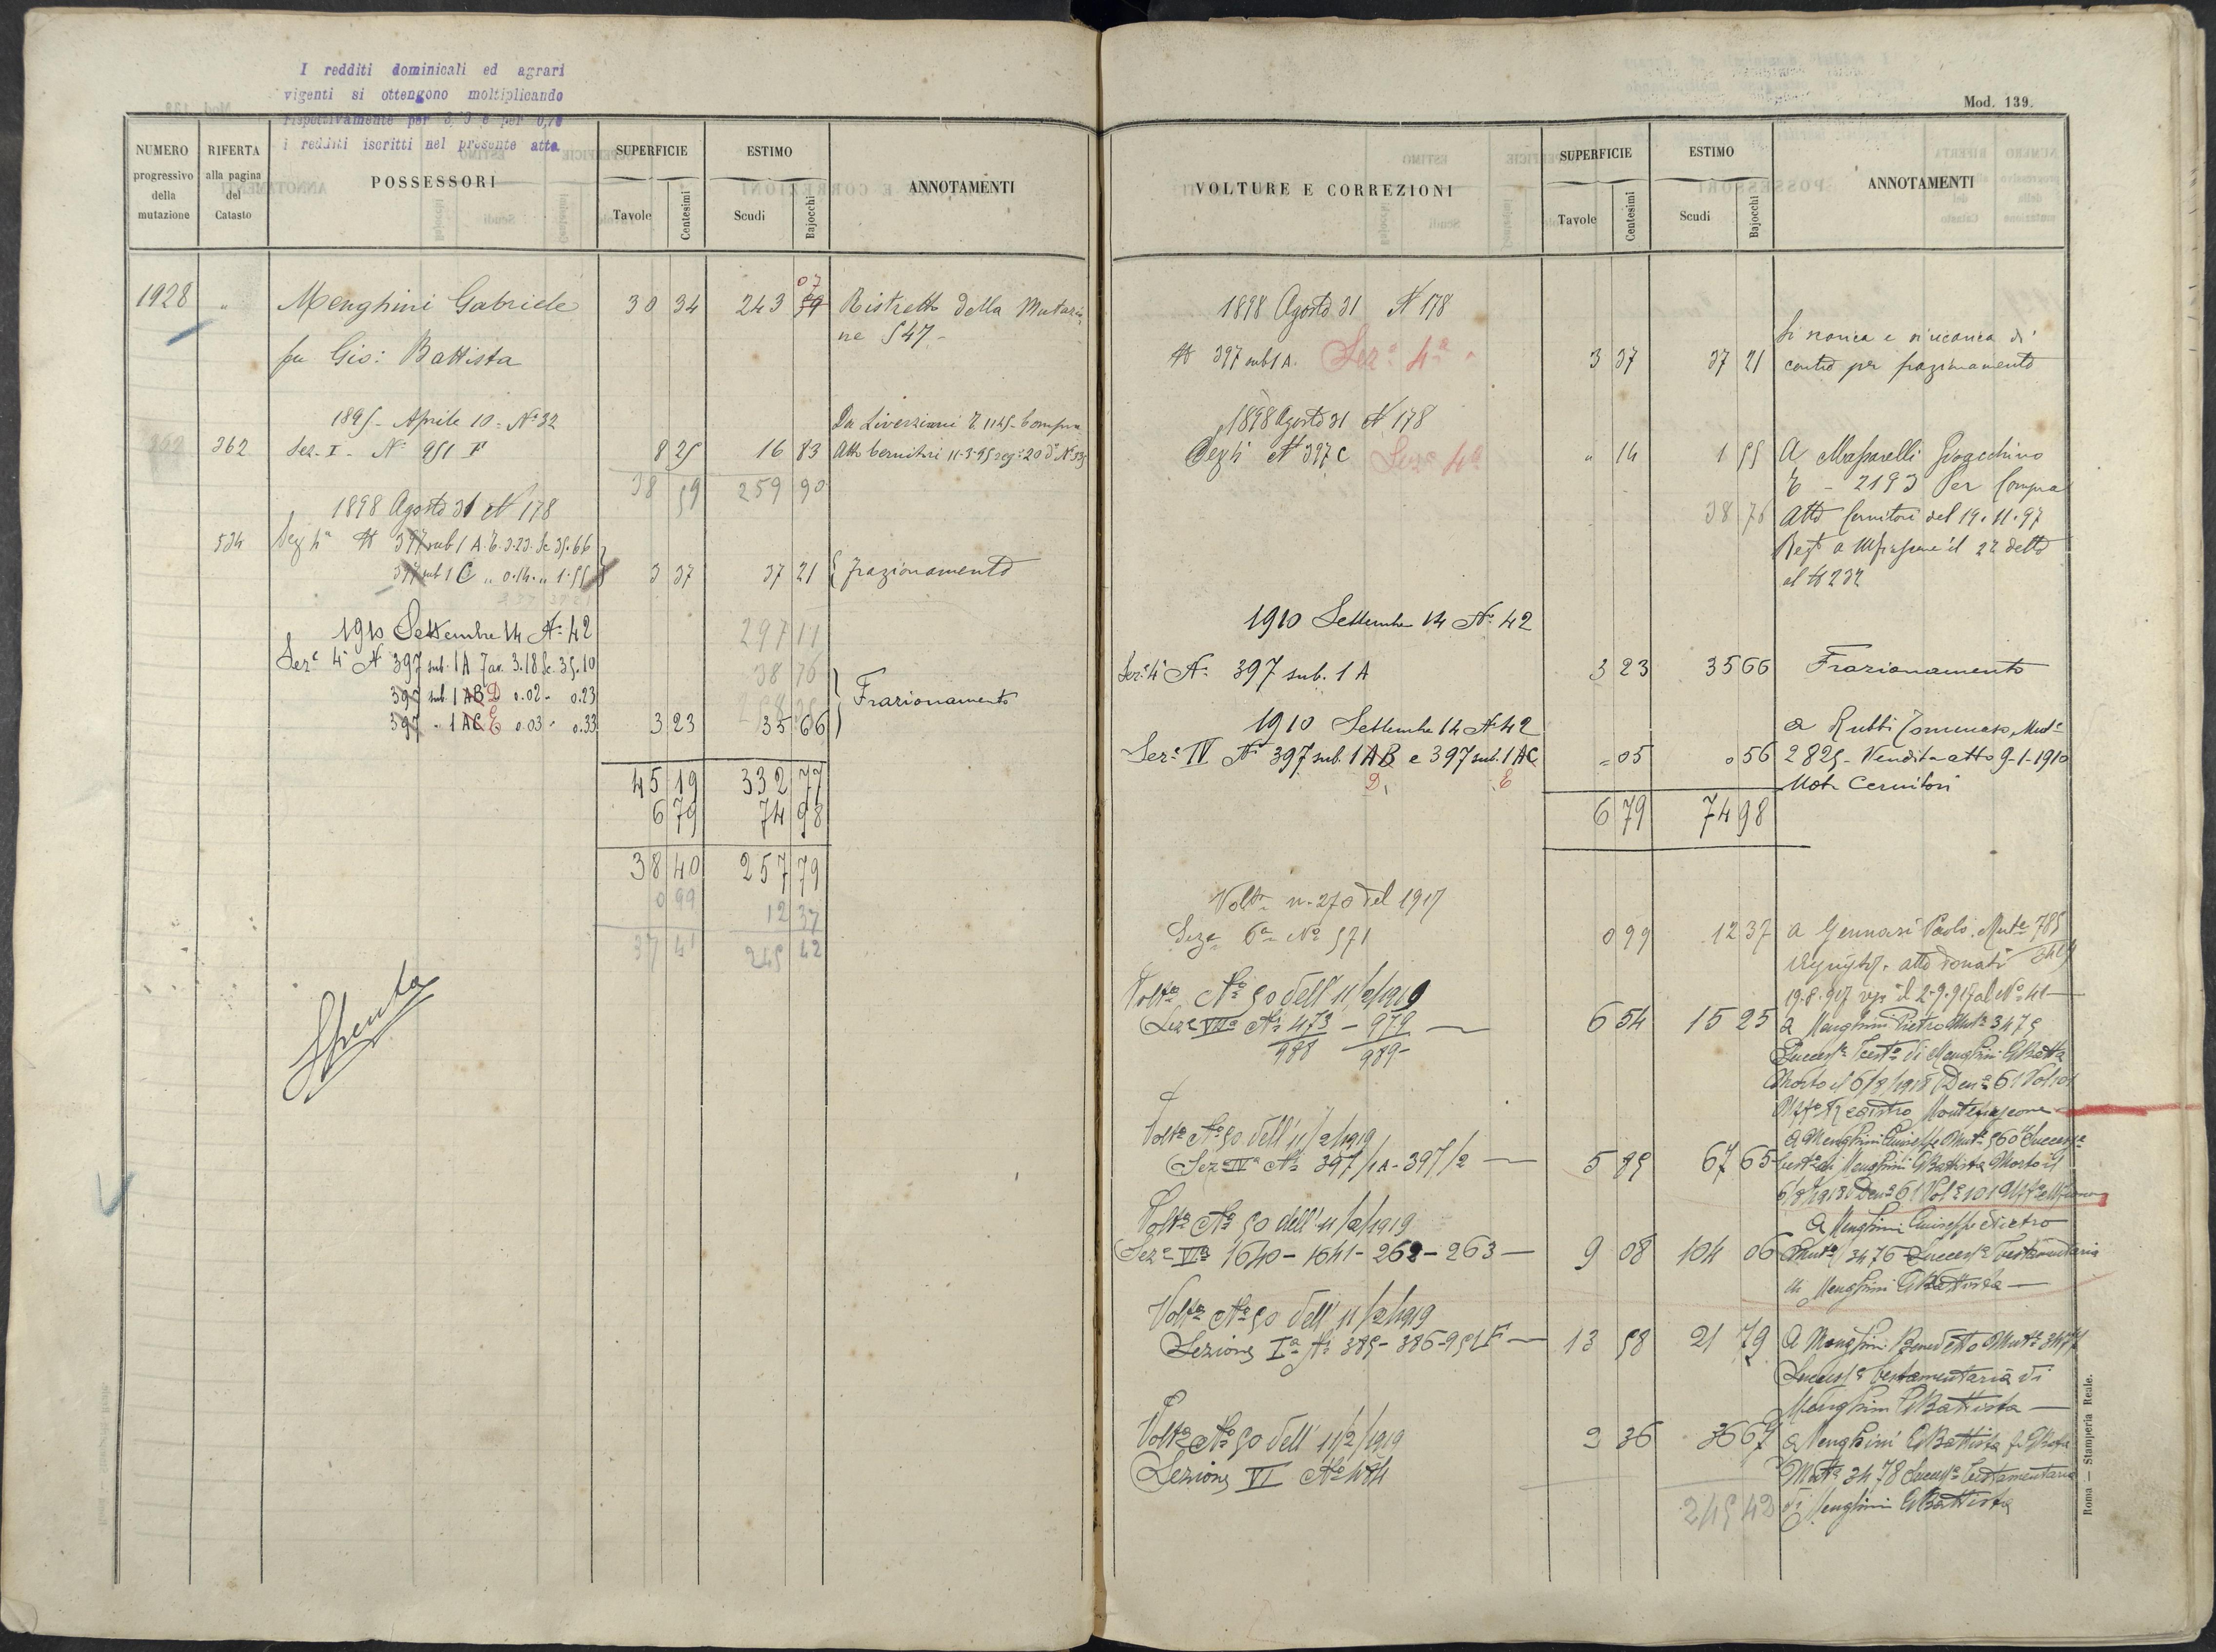 I redditi dominicali ed agrari
vigenti si ottengono moltiplicando
rispettivamente per
i redditi iscritti nel presente atto
NUMERO progressivo della mutazione
RIFERTA alla pagina del Catasto
POSSESSORI
SUPERFICIE
Tavole Centesimi
ESTIMO
Scudi Bajocchi
ANNOTAMENTI
1928 " Menghini Gabriele 30 34 243 07 Ristretto della Mutazio
fu Gio: Battista ne 547
1895 - Aprile 10 - Nº 32
362 362 Sez. I - Nº 951 F 8 25 16 83
38 59 259 90
1898 Agosto 31 N 178
534 397 sub 1 A. 3.23. Sc 35.66
397 sub 1 C " 0.14. " 1.55 3 37 37 21 frazionamento
1910 Settembre 14 Nº 42 297 11
Sez.e 4ª N 397 sub. 1A Tav. 3.18 Sc. 35.10 38 76
397 sub. 1 AB D 0.02 - 0.23 Frazionamento
397 - 1 AC E 0.03 - 0.33 3 23 35 66
45 19 332 77
6 79 74 98
38 40 257 79
0 99 12 37
37 41 245 42
Spenta
Mod. 139.
VOLTURE E CORREZIONI
SUPERFICIE
Tavole Centesimi
ESTIMO
Scudi Bajocchi
ANNOTAMENTI
1898 Agosto 31 N 178
Si scarica e si ricarica di
N 397 sub 1 A. Sez.e 4ª 3 37 37 21 conto per frazionamento
1898 Agosto 31 N 178
N 397 C Sez.e 4ª " 14 1 55 A Massarelli Gioacchino
2193 Per Compra
38 76 Atto Cernitori del 19.11.97
il 22 detto
al N 232
1910 Settembre 14 Nº 42
Sez.e 4ª Nº 397 sub. 1 A 3 23 35 66 Frazionamento
1910 Settembre 14 Nº 42 a Rubbi Tommaso, Mut.e
Sez.e IV Nº 397 sub. 1 AB e 397 sub. 1 AC " 05 0 56 2825 - Vendita atto 9-1-1910
D, E Not. Cernitori
6 79 74 98
Volt. n. 270 del 1917
Sez.e 6ª Nº 571 0 99 12 37 a Gennari Paolo. Mut.e 785
atto Donati
19.8.917 2.9.917 al Nº 41
Volt.a Nº 50 dell' 11/2/1919
Sez.e VIIª Ni 473 - 979 6 54 15 25 a Menghini Pietro Mut.e 3475
988 989 Success.e Test.a di Menghini GBatta
Morto il 6/8/1918 Den.a 61
Registro Montefiascone
Volt.a Nº 50 dell' 11/2/1919 a Menghini Giuseppe Mut.e
Sez.e IVª Ni 397/1A - 397/2 5 89 67 65 di Menghini GBattista Morto il
6/8/1918 Den.a 61 Vol.e 101
Volt.a Nº 50 dell' 11/2/1919 a Menghini Giuseppe Pietro
Sez.e VIª 1640 - 1641 - 262 - 263 9 08 104 06 Mut.e 3476 Success.e Testamentaria
di Menghini GBattista
Volt.a Nº 50 dell' 11/2/1919
Sezione Iª Ni 385 - 386 - 951F 13 58 21 79 a Menghini Benedetto Mut.e 3477
Success.e testamentaria di
Menghini GBattista
Volt.a Nº 50 dell' 11/2/1919 2 36 36 67 a Menghini GBattista
Sezione VI Nº Mut.e 3478 Success.e Testamentaria
245 42 di Menghini GBattista
Roma — Stamperia Reale.